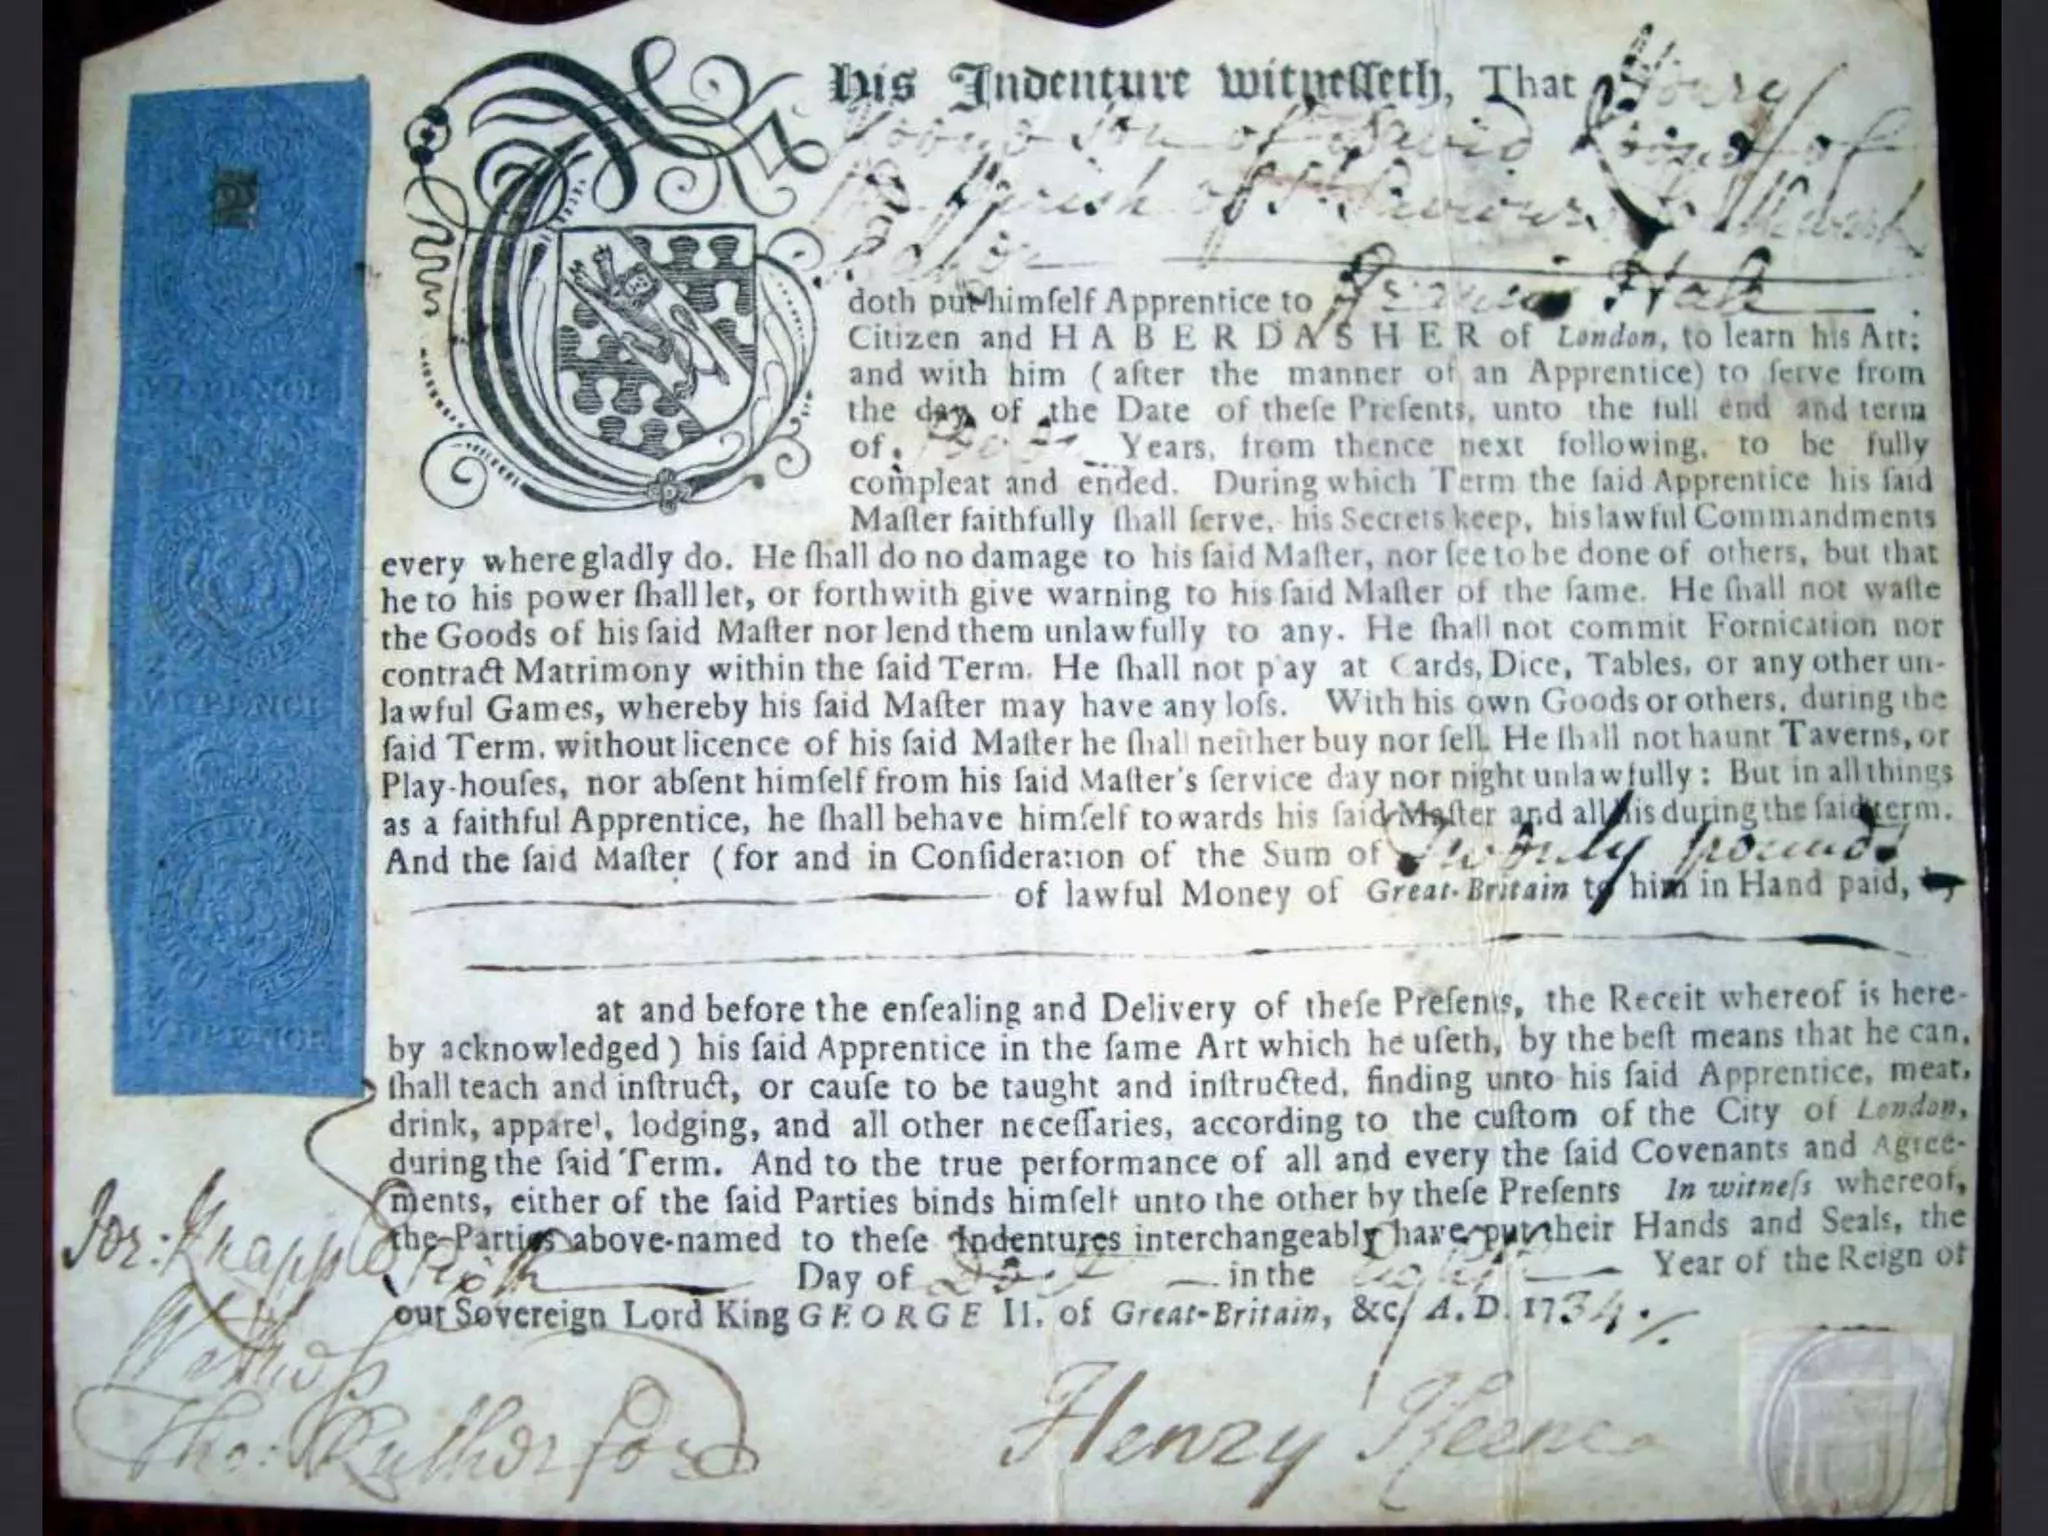 his Indenture witneſſeth, That Henry
Keene Son of David Keene of
the Pariſh of St. Saviours Southwark
doth put himſelf Apprentice to Francis
Citizen and HABERDASHER of London, to learn his Art;
and with him (after the manner of an Apprentice) to ſerve from
the day of the Date of theſe Preſents, unto the full end and term
of Years, from thence next following, to be fully
compleat and ended. During which Term the ſaid Apprentice his ſaid
Maſter faithfully ſhall ſerve, his Secrets keep, his lawful Commandments
every where gladly do. He ſhall do no damage to his ſaid Maſter, nor ſee to be done of others, but that
he to his power ſhall let, or forthwith give warning to his ſaid Maſter of the ſame. He ſhall not waſte
the Goods of his ſaid Maſter nor lend them unlawfully to any. He ſhall not commit Fornication nor
contract Matrimony within the ſaid Term. He ſhall not play at Cards, Dice, Tables, or any other un-
lawful Games, whereby his ſaid Maſter may have any loſs. With his own Goods or others, during the
ſaid Term, without licence of his ſaid Maſter he ſhall neither buy nor ſell. He ſhall not haunt Taverns, or
Play-houſes, nor abſent himſelf from his ſaid Maſter's ſervice day nor night unlawfully: But in all things
as a faithful Apprentice, he ſhall behave himſelf towards his ſaid Maſter and all his during the ſaid term.
And the ſaid Maſter (for and in Conſideration of the Sum of Twenty pounds
of lawful Money of Great-Britain to him in Hand paid, by
at and before the enſealing and Delivery of theſe Preſents, the Receit whereof is here-
by acknowledged) his ſaid Apprentice in the ſame Art which he uſeth, by the beſt means that he can,
ſhall teach and inſtruct, or cauſe to be taught and inſtructed, finding unto his ſaid Apprentice, meat,
drink, apparel, lodging, and all other neceſſaries, according to the cuſtom of the City of London,
during the ſaid Term. And to the true performance of all and every the ſaid Covenants and Agree-
ments, either of the ſaid Parties binds himſelf unto the other by theſe Preſents In witneſs whereof,
the Parties above-named to theſe Indentures interchangeably have put their Hands and Seals, the
Day of in the Eighth Year of the Reign of
our Sovereign Lord King GEORGE II. of Great-Britain, &c. A.D. 1734
VI PENCE
VI PENCE
VI PENCE
Jor: Knapp
Tho: Rutherford
Henry Keene